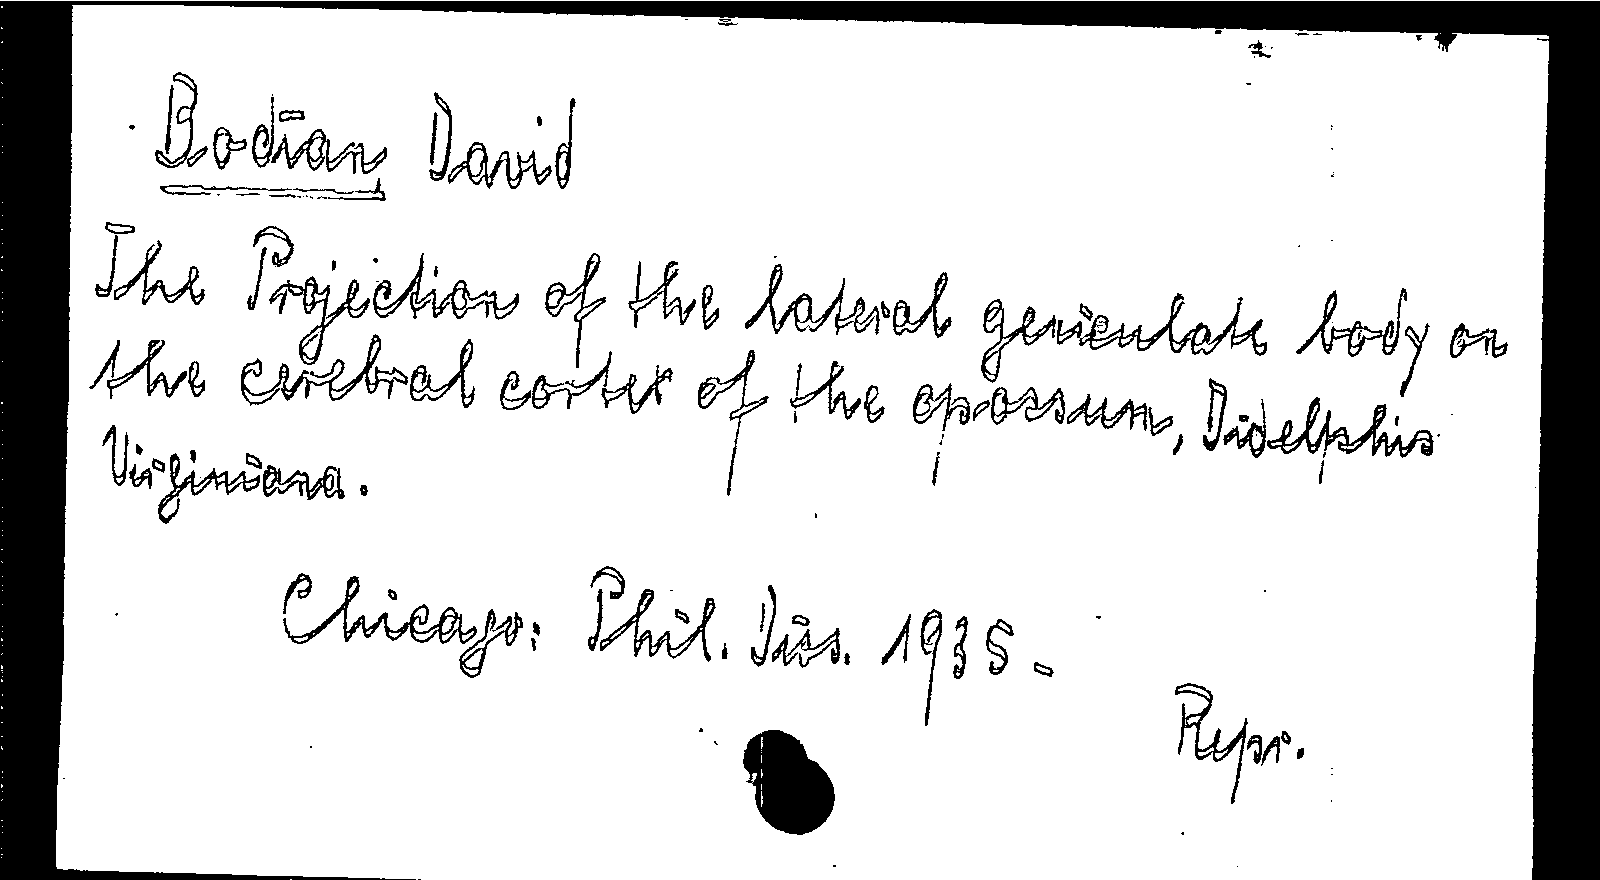 Bodian David
The Projection of the lateral geniculate body on
the cerebral cortex of the opossum, Didelphis
Virginiana.
Chicago: Phil. Dis. 1935.
Repr.